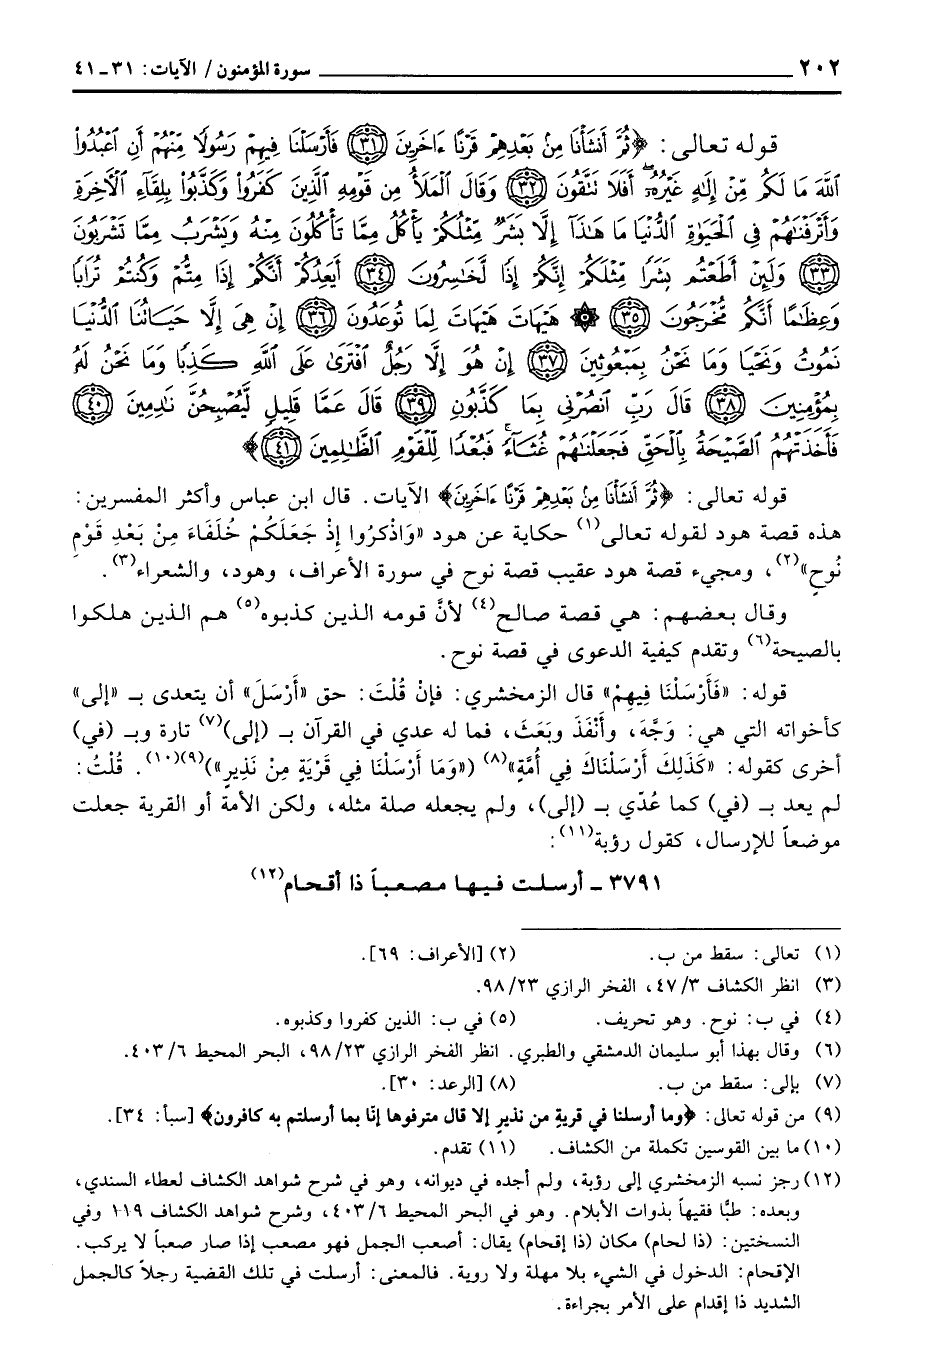 ٢٠٢ سورة المؤمنون / الآيات: ٣١ - ٤١
قوله تعالى: ﴿ثُمَّ أَنشَأْنَا مِنۢ بَعْدِهِمْ قَرْنًا ءَاخَرِينَ ﴿٣١﴾ فَأَرْسَلْنَا فِيهِمْ رَسُولًا مِّنْهُمْ أَنِ ٱعْبُدُوا۟
ٱللَّهَ مَا لَكُم مِّنْ إِلَٰهٍ غَيْرُهُۥٓ ۖ أَفَلَا تَتَّقُونَ ﴿٣٢﴾ وَقَالَ ٱلْمَلَأُ مِن قَوْمِهِ ٱلَّذِينَ كَفَرُوا۟ وَكَذَّبُوا۟ بِلِقَآءِ ٱلْءَاخِرَةِ
وَأَتْرَفْنَٰهُمْ فِى ٱلْحَيَوٰةِ ٱلدُّنْيَا مَا هَٰذَآ إِلَّا بَشَرٌ مِّثْلُكُمْ يَأْكُلُ مِمَّا تَأْكُلُونَ مِنْهُ وَيَشْرَبُ مِمَّا تَشْرَبُونَ
﴿٣٣﴾ وَلَئِنْ أَطَعْتُم بَشَرًا مِّثْلَكُمْ إِنَّكُمْ إِذًا لَّخَٰسِرُونَ ﴿٣٤﴾ أَيَعِدُكُمْ أَنَّكُمْ إِذَا مِتُّمْ وَكُنتُمْ تُرَابًا
وَعِظَٰمًا أَنَّكُم مُّخْرَجُونَ ﴿٣٥﴾ ۞ هَيْهَاتَ هَيْهَاتَ لِمَا تُوعَدُونَ ﴿٣٦﴾ إِنْ هِىَ إِلَّا حَيَاتُنَا ٱلدُّنْيَا
نَمُوتُ وَنَحْيَا وَمَا نَحْنُ بِمَبْعُوثِينَ ﴿٣٧﴾ إِنْ هُوَ إِلَّا رَجُلٌ ٱفْتَرَىٰ عَلَى ٱللَّهِ كَذِبًا وَمَا نَحْنُ لَهُۥ
بِمُؤْمِنِينَ ﴿٣٨﴾ قَالَ رَبِّ ٱنصُرْنِى بِمَا كَذَّبُونِ ﴿٣٩﴾ قَالَ عَمَّا قَلِيلٍ لَّيُصْبِحُنَّ نَٰدِمِينَ ﴿٤٠﴾
فَأَخَذَتْهُمُ ٱلصَّيْحَةُ بِٱلْحَقِّ فَجَعَلْنَٰهُمْ غُثَآءً ۚ فَبُعْدًا لِّلْقَوْمِ ٱلظَّٰلِمِينَ ﴿٤١﴾﴾
قوله تعالى: ﴿ثُمَّ أَنشَأْنَا مِنۢ بَعْدِهِمْ قَرْنًا ءَاخَرِينَ﴾ الآيات. قال ابن عباس وأكثر المفسرين:
هذه قصة هود لقوله تعالى(١) حكاية عن هود «وَاذْكُرُوا إِذْ جَعَلَكُمْ خُلَفَاءَ مِنْ بَعْدِ قَوْمِ
نُوحٍ»(٢)، ومجيء قصة هود عقيب قصة نوح في سورة الأعراف، وهود، والشعراء(٣).
وقال بعضهم: هي قصة صالح(٤) لأنَّ قومه الذين كذبوه(٥) هم الذين هلكوا
بالصيحة(٦) وتقدم كيفية الدعوى في قصة نوح.
قوله: «فَأَرْسَلْنَا فِيهِمْ» قال الزمخشري: فإنْ قُلْتَ: حق «أَرْسَلَ» أن يتعدى بـ «إلى»
كأخواته التي هي: وَجَّهَ، وأَنْفَذَ وبَعَثَ، فما له عدي في القرآن بـ (إلى)(٧) تارة وبـ (في)
أخرى كقوله: «كَذَلِكَ أَرْسَلْنَاكَ فِي أُمَّةٍ»(٨) («وَمَا أَرْسَلْنَا فِي قَرْيَةٍ مِنْ نَذِيرٍ»)(٩)(١٠). قُلْتُ:
لم يعد بـ (في) كما عُدّي بـ (إلى)، ولم يجعله صلة مثله، ولكن الأمة أو القرية جعلت
موضعاً للإرسال، كقول رؤبة(١١):
٣٧٩١ - أرسلت فيها مصعباً ذا أقحام(١٢)
(١) تعالى: سقط من ب. (٢) [الأعراف: ٦٩].
(٣) انظر الكشاف ٤٧/٣، الفخر الرازي ٩٨/٢٣.
(٤) في ب: نوح. وهو تحريف. (٥) في ب: الذين كفروا وكذبوه.
(٦) وقال بهذا أبو سليمان الدمشقي والطبري. انظر الفخر الرازي ٩٨/٢٣، البحر المحيط ٤٠٣/٦.
(٧) بإلى: سقط من ب. (٨) [الرعد: ٣٠].
(٩) من قوله تعالى: ﴿وما أرسلنا في قريةٍ من نذيرٍ إلا قال مترفوها إنّا بما أرسلتم به كافرون﴾ [سبأ: ٣٤].
(١٠) ما بين القوسين تكملة من الكشاف. (١١) تقدم.
(١٢) رجز نسبه الزمخشري إلى رؤبة، ولم أجده في ديوانه، وهو في شرح شواهد الكشاف لعطاء السندي،
وبعده: طبًّا فقيهاً بذوات الأبلام. وهو في البحر المحيط ٤٠٣/٦، وشرح شواهد الكشاف ١١٩ وفي
النسختين: (ذا لحام) مكان (ذا إقحام) يقال: أصعب الجمل فهو مصعب إذا صار صعباً لا يركب.
الإقحام: الدخول في الشيء بلا مهلة ولا روية. فالمعنى: أرسلت في تلك القضية رجلاً كالجمل
الشديد ذا إقدام على الأمر بجراءة.